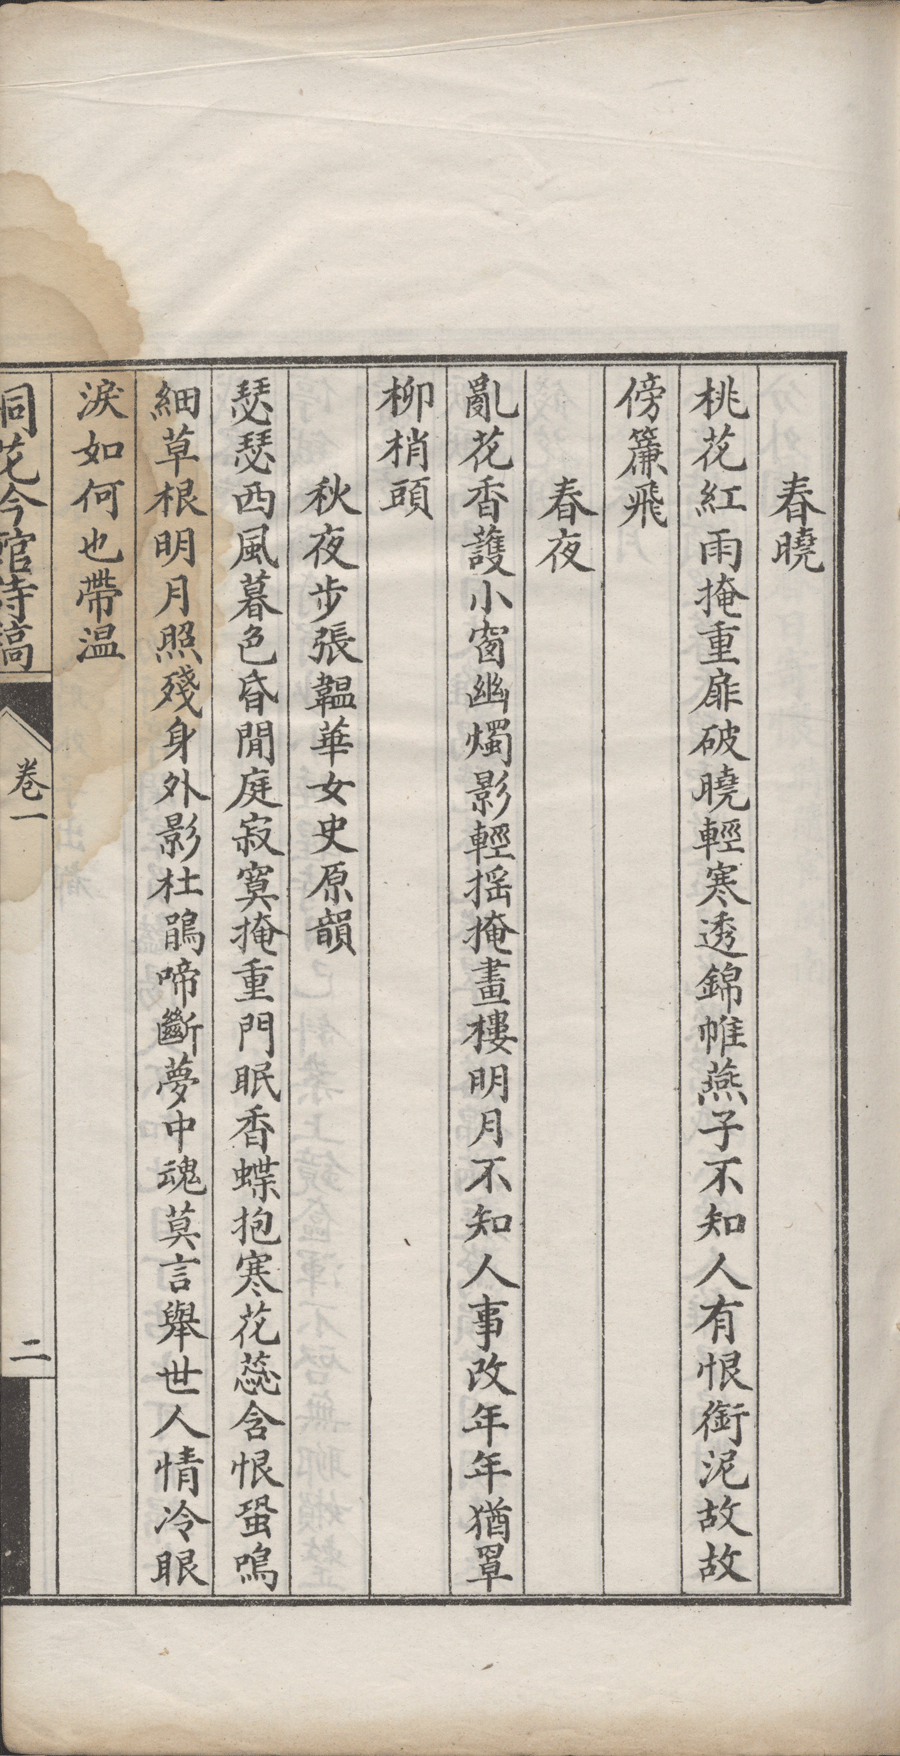 春曉
桃花紅雨掩重扉破曉輕寒透錦帷燕子不知人有恨銜泥故故
傍簾飛
春夜
亂花香護小窗幽燭影輕搖掩畫樓明月不知人事改年年猶罩
柳梢頭
秋夜步張韞華女史原韻
瑟瑟西風暮色昏閒庭寂寞掩重門眠香蝶抱寒花蕊含恨蛩鳴
細草根明月照殘身外影杜鵑啼斷夢中魂莫言舉世人情冷眼
淚如何也帶温
桐花今館詩稿
卷一
二